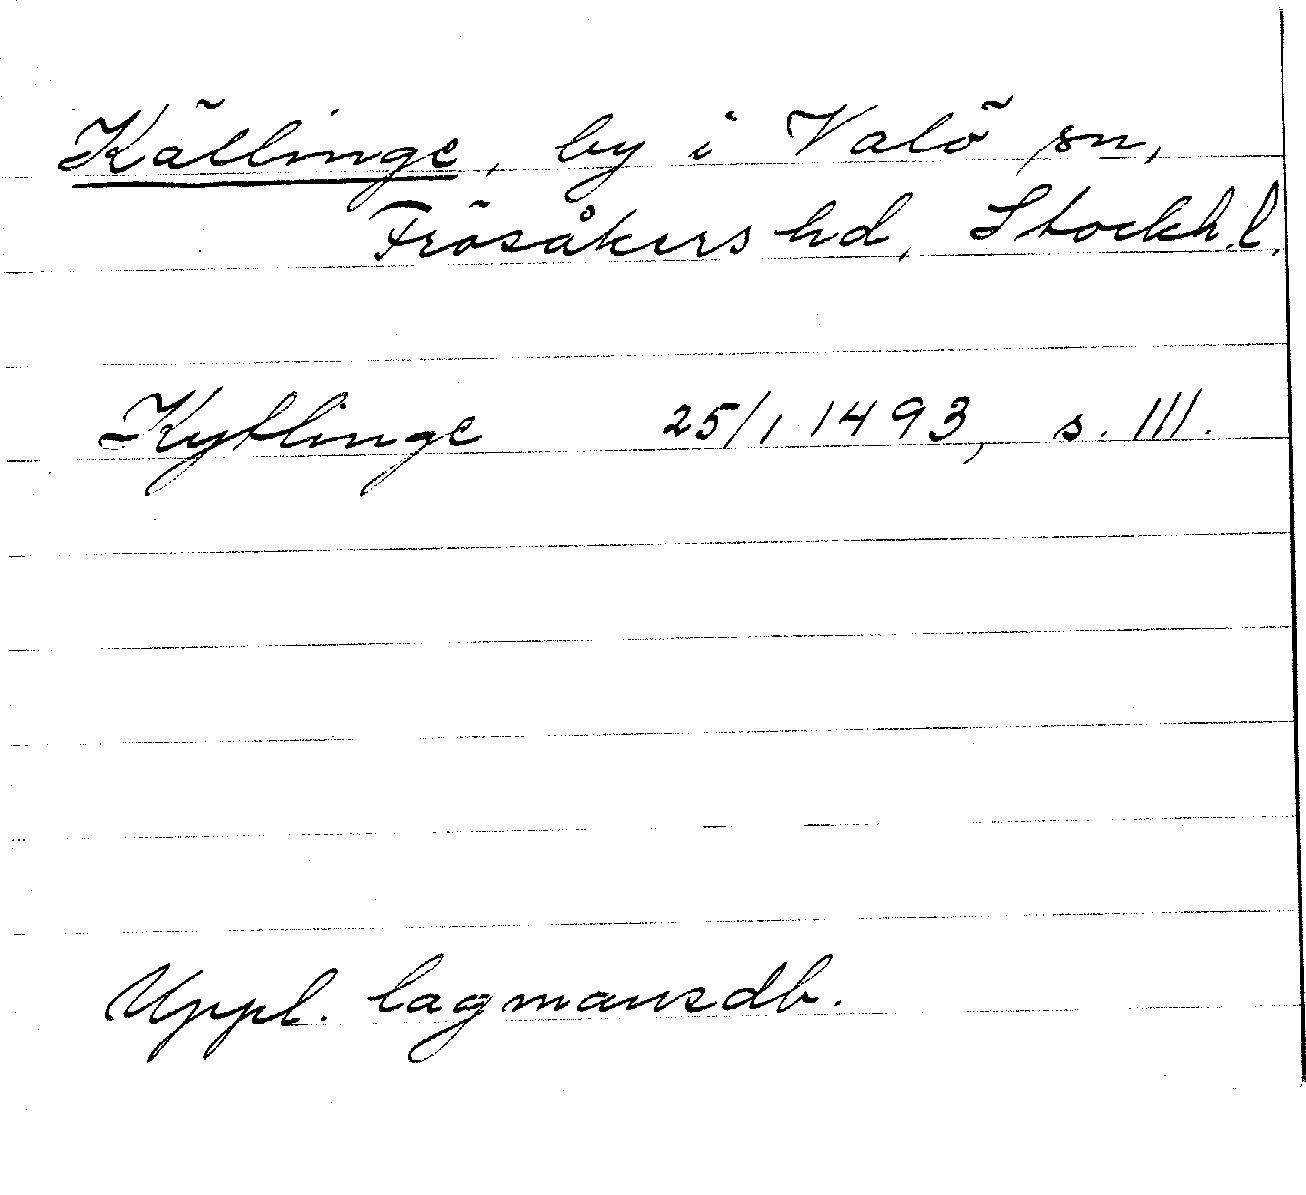 Källinge, by i Valö sn,
Frösåkers hd, Stockh.l.
Kytlinge 25/1 1493, s. 111.
Uppl. lagmansdb.